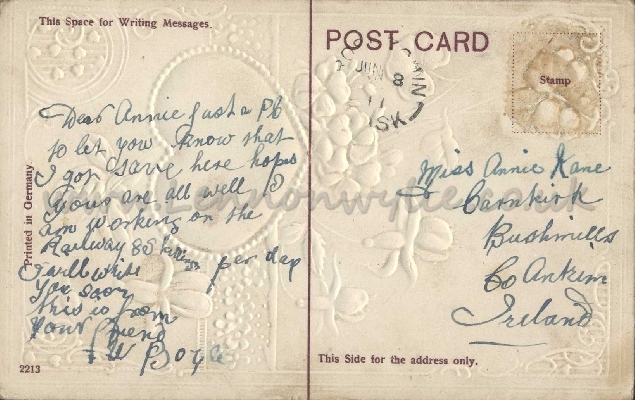 This Space for Writing Messages.
POST CARD
JUN 8
11
SK
Stamp
Dear Annie Just a PC
to let you know that
I got save here hopes
yous are all well I
am working on the
Railway 8 Shillings per day
I will write
you soon
this is from
your friend
W Boyle
Miss Annie Kane
Carnkirk
Bushmills
Co Antrim
Ireland
Printed in Germany
2213
This Side for the address only.